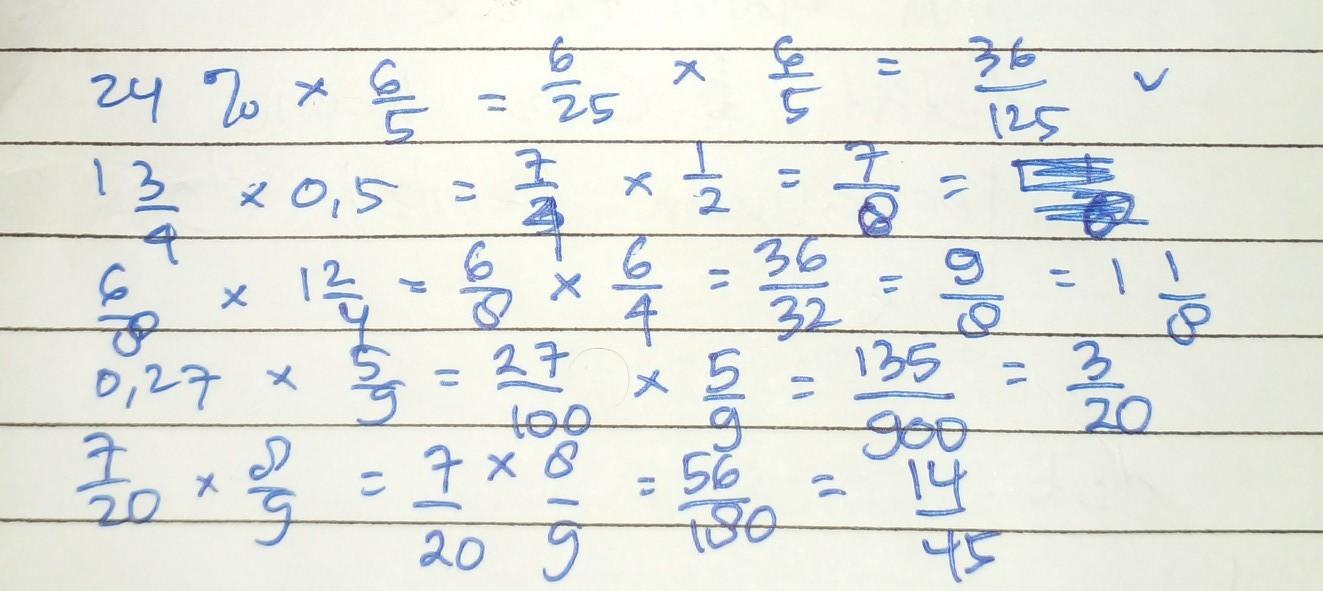 24 % × 6/5 = 6/25 × 6/5 = 36/125 ✓
1 3/4 × 0,5 = 7/4 × 1/2 = 7/8 =
6/8 × 1 2/4 = 6/8 × 6/4 = 36/32 = 9/8 = 1 1/8
0,27 × 5/9 = 27/100 × 5/9 = 135/900 = 3/20
7/20 × 8/9 = 7/20 × 8/9 = 56/180 = 14/45